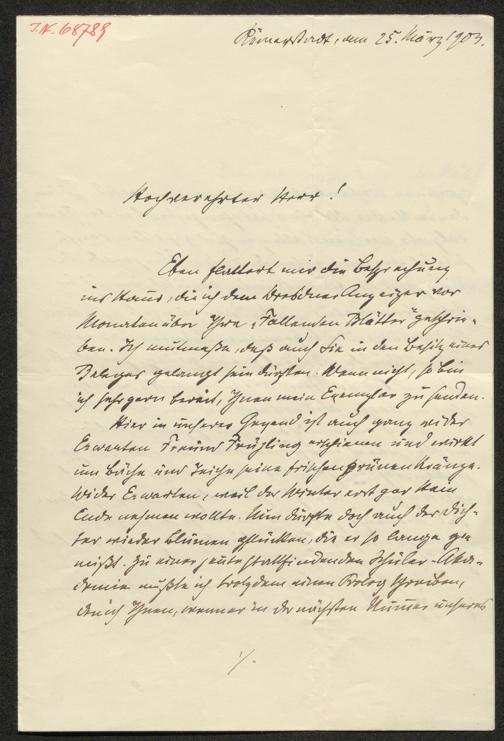 I.N. 68789
Römerstadt, am 25. März 1903.
Hochverehrter Herr!
Eben flattert mir die Besprechung
ins Haus, die ich dem Dresdner Anzeiger vor
Monaten über Ihre „Fallenden Blätter" geschrie-
ben. Ich mutmaße, daß auch Sie in den Besitz eines
Beleges gelangt sein dürften. Wenn nicht, so bin
ich sehr gern bereit, Ihnen mein Exemplar zu senden.
Hier in unserer Gegend ist auch ganz wider
Erwarten Freund Frühling erschienen und wirkt
um Büsche und Teiche seine frischen grünen Kränze.
Wider Erwarten, weil der Winter erst gar kein
Ende nehmen wollte. Nun dürfte doch auch der Dich-
ter wieder Blumen pflücken, die er so lange ge
mißt. Zu einer heute stattfindenden Schüler-Aka-
demie mußte ich trotzdem einen Prolog schreiben,
den ich Ihnen, wenn er in der nächsten Nummer unseres
1/.